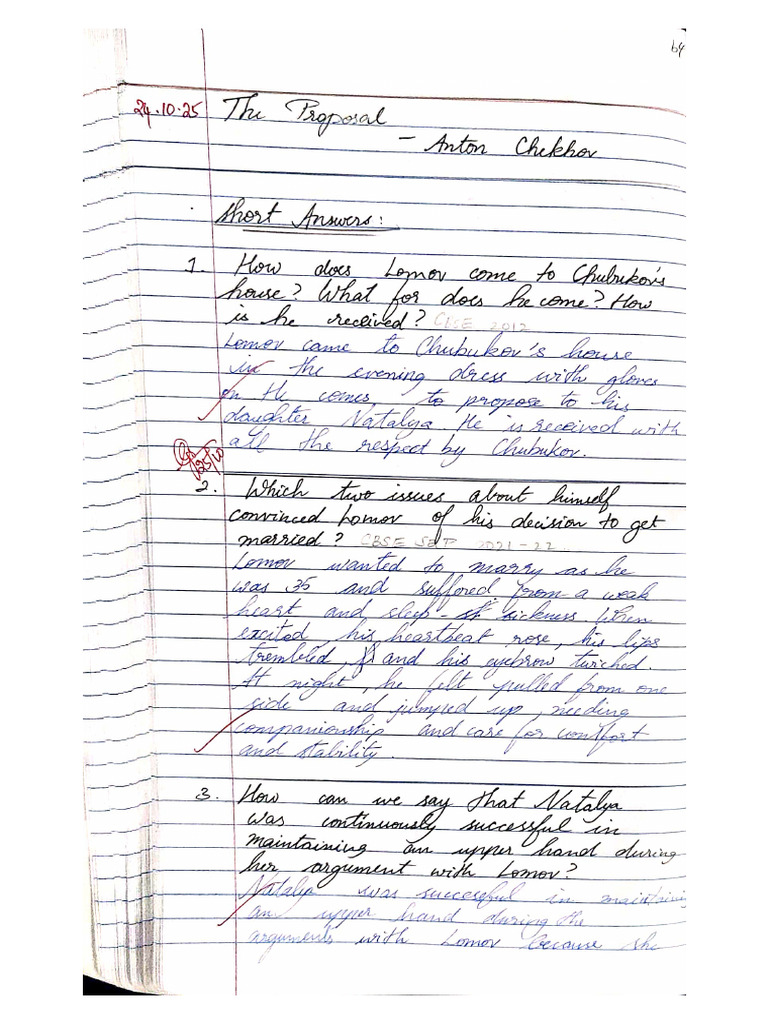 64
24.10.25 The Proposal
- Anton Chekhov
Short Answers:
1. How does Lomov come to Chubukov's
house? What for does he come? How
is he received? CBSE 2012
Lomov came to Chubukov's house
in the evening dress with gloves
on He comes, to propose to his
daughter Natalya. He is received with
all the respect by Chubukov.
25/10
2. Which two issues about himself
convinced Lomov of his decision to get
married? CBSE SEP 2021-22
Lomov wanted to marry as he
was 35 and suffered from a weak
heart and sleep- sickness. When
excited, his heartbeat rose, his lips
trembled, and his eyebrow twiched.
At night, he felt pulled from one
side and jumped up, needing
companionship and care for comfort
and stability.
3. How can we say that Natalya
was continuously successful in
maintaining an upper hand during
her argument with Lomov?
Natalya was successful in maintaining
an upper hand during the
arguments with Lomov because she